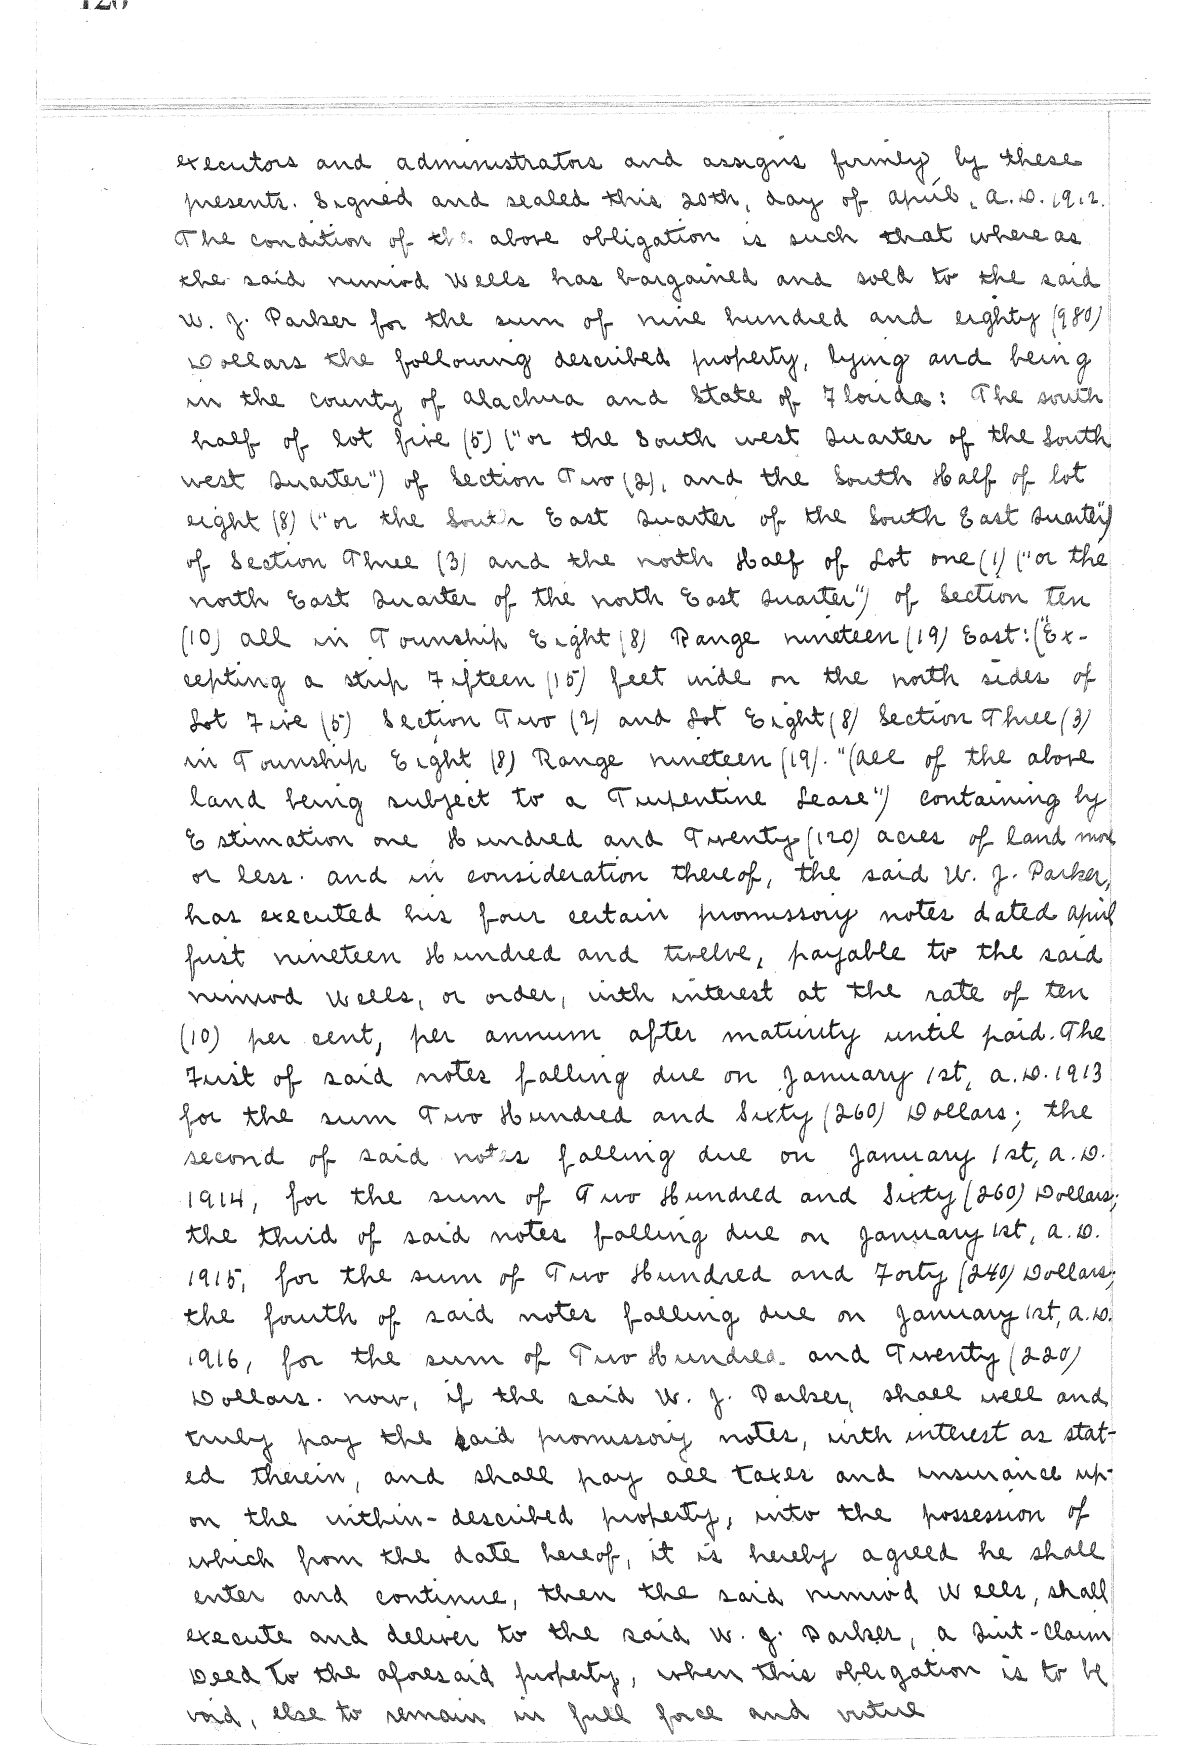 executors and administrators and assigns firmly by these
presents. Signed and sealed this 20th, day of April, A.D. 1912.
The condition of the above obligation is such that where as
the said Nimrod Wells has bargained and sold to the said
W. J. Parker for the sum of nine hundred and eighty (980)
Dollars the following described property, lying and being
in the county of Alachua and State of Florida: The south
half of lot five (5) ("or the South west Quarter of the South
west Quarter") of Section Two (2), and the South Half of lot
eight (8) ("or the South East Quarter of the South East Quarter")
of Section Three (3) and the North Half of Lot one (1) ("or the
North East Quarter of the North East Quarter") of Section Ten
(10) all in Township Eight (8) Range nineteen (19) East: ("Ex-
cepting a strip Fifteen (15) feet wide on the north sides of
Lot Five (5) Section Two (2) and Lot Eight (8) Section Three (3)
in Township Eight (8) Range nineteen (19). "(All of the above
land being subject to a Turpentine Lease") containing by
Estimation one Hundred and Twenty (120) acres of land more
or less. And in consideration thereof, the said W. J. Parker,
has executed his four certain promissory notes dated April
first nineteen Hundred and twelve, payable to the said
Nimrod Wells, or order, with interest at the rate of ten
(10) per cent, per annum after maturity until paid. The
First of said notes falling due on January 1st, A.D. 1913
for the sum Two Hundred and Sixty (260) Dollars; the
second of said notes falling due on January 1st, A.D.
1914, for the sum of Two Hundred and Sixty (260) Dollars;
the third of said notes falling due on January 1st, A.D.
1915, for the sum of Two Hundred and Forty (240) Dollars;
the fourth of said notes falling due on January 1st, A.D.
1916, for the sum of Two Hundred and Twenty (220)
Dollars. Now, if the said W. J. Parker, shall well and
truly pay the said promissory notes, with interest as stat-
ed therein, and shall pay all taxes and insurance up-
on the within-described property, into the possession of
which from the date hereof, it is hereby agreed he shall
enter and continue, then the said Nimrod Wells, shall
execute and deliver to the said W. J. Parker, a Quit-Claim
Deed to the aforesaid property, when this obligation is to be
void, else to remain in full force and virtue